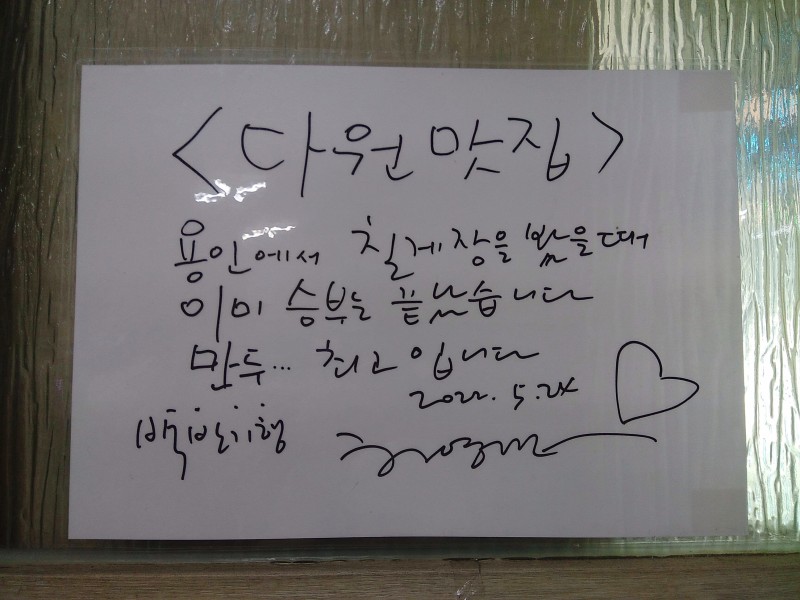 <다원 맛집>
용인에서 칠게장을 봤을때
이미 승부는 끝났습니다
만두... 최고입니다
2022. 5. 24
백반기행